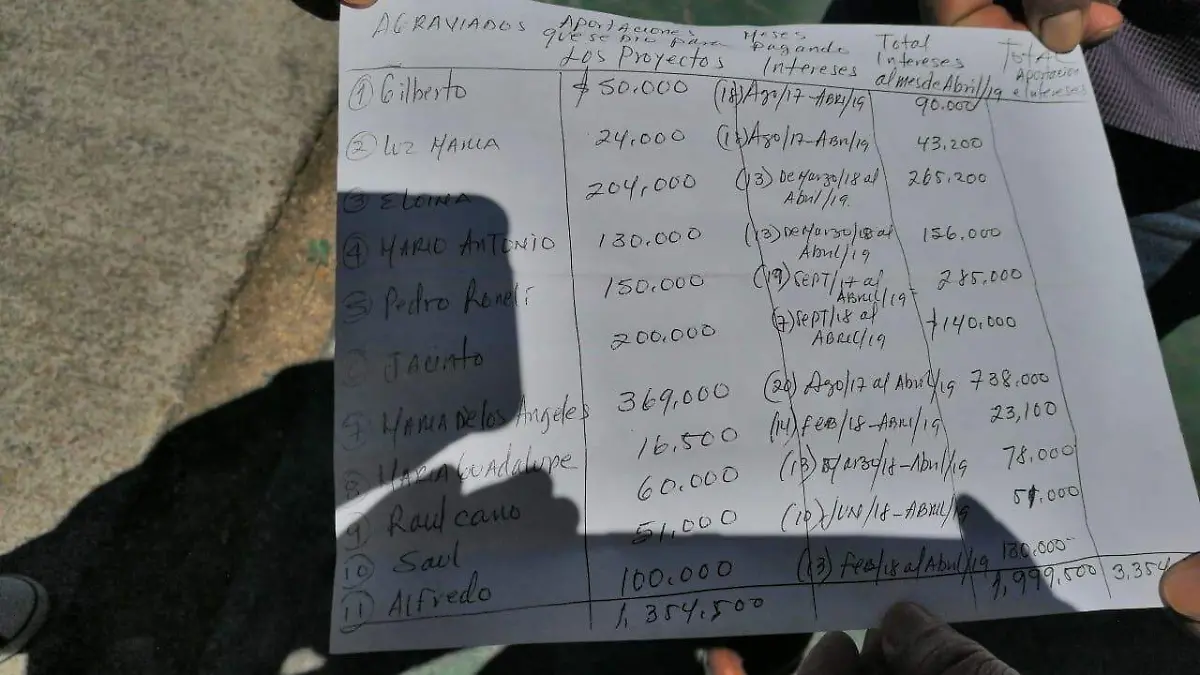 AGRAVIADOS
Aportaciones que se dio para Los Proyectos
Meses pagando Intereses
Total Intereses al mes de Abril/19
TOTAL Aportacion e Intereses
① Gilberto $50.000 (18) Ago/17-ABRI/19 90.000
② LUZ MARIA 24,000 Ago/17-ABRI/19 43,200
③ ELOINA 204,000 (13) DE MARZO/18 al Abril/19. 265,200
④ MARIO ANTONIO 130.000 (13) DE MARZO/18 al Abril/19 156,000
⑤ Pedro 150.000 (19) SEPT/17 al ABRIL/19- 285,000
JACINTO 200.000 (7) SEPT/18 al ABRIL/19 140,000
⑦ MARIA DE LOS Angeles 369,000 (20) Ago/17 al Abril/19 738,000
⑧ MARIA GUADALUPE 16,500 (14) FEB/18-ABRI/19 23,100
⑨ Raul cano 60.000 (13) /18-Abril/19 78,000
⑩ Saul 51,000 (10) JUN/18-ABRIL/19 51,000
⑪ Alfredo 100.000 (13) FEB/18 al Abril/19 130,000-
1,354,500 1,999,500 3,354